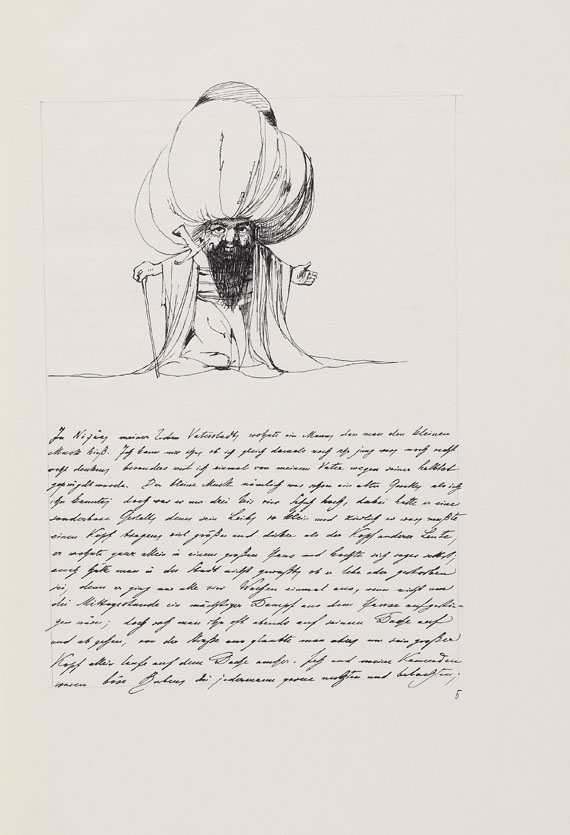 In Nicäa, meiner lieben Vaterstadt, wohnte ein Mann, den man den kleinen
Muck hieß. Ich kann mir ihn, ob ich gleich damals noch sehr jung war, noch recht
wohl denken, besonders weil ich einmal von meinem Vater wegen seiner halbtot
geprügelt wurde. Der kleine Muck nämlich war schon ein alter Geselle, als ich
ihn kannte; doch war er nur drei bis vier Schuh hoch, dabei hatte er eine
sonderbare Gestalt, denn sein Leib, so klein und zierlich er war, mußte
einen Kopf tragen, viel größer und dicker als der Kopf anderer Leute;
er wohnte ganz allein in einem großen Haus und kochte sich sogar selbst,
auch hätte man in der Stadt nicht gewußt, ob er lebe oder gestorben
sei, denn er ging nur alle vier Wochen einmal aus, wenn nicht um
die Mittagsstunde ein mächtiger Dampf aus dem Hause aufgestie-
gen wäre; doch sah man ihn oft abends auf seinem Dache auf
und ab gehen, von der Straße aus glaubte man aber, nur sein großer
Kopf allein laufe auf dem Dache umher. Ich und meine Kameraden
waren böse Buben, die jedermann gerne neckten und belachten;
5